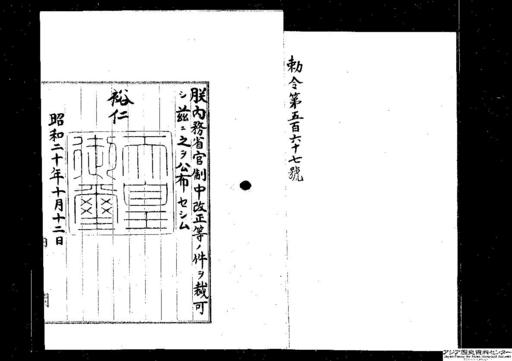 勅令第五百六十七號
朕內務省官制中改正等ノ件ヲ裁可
シ茲ニ之ヲ公布セシム
裕仁
天皇
御璽
昭和二十年十月十二日
アジア歴史資料センター